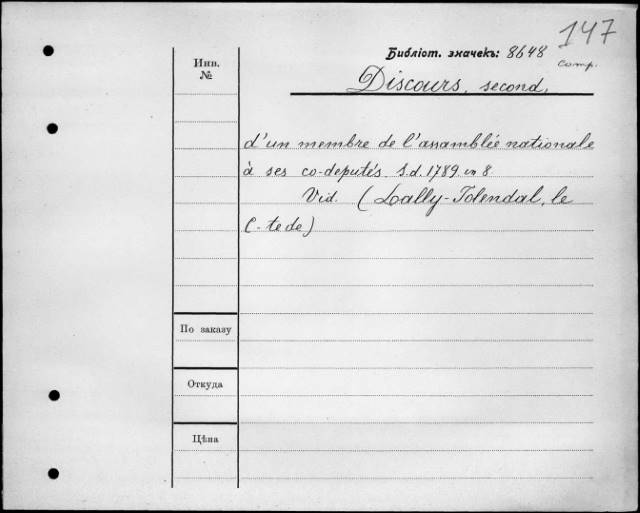 147
Библіот. значекъ: 8648
comp.
Инв.
№
Discours, second,
d'un membre de l'assamblée nationale
à ses co-deputés. S.d. 1789. in 8.
Vid. (Lally-Tolendal, le
C-te de)
По заказу
Откуда
Цѣна